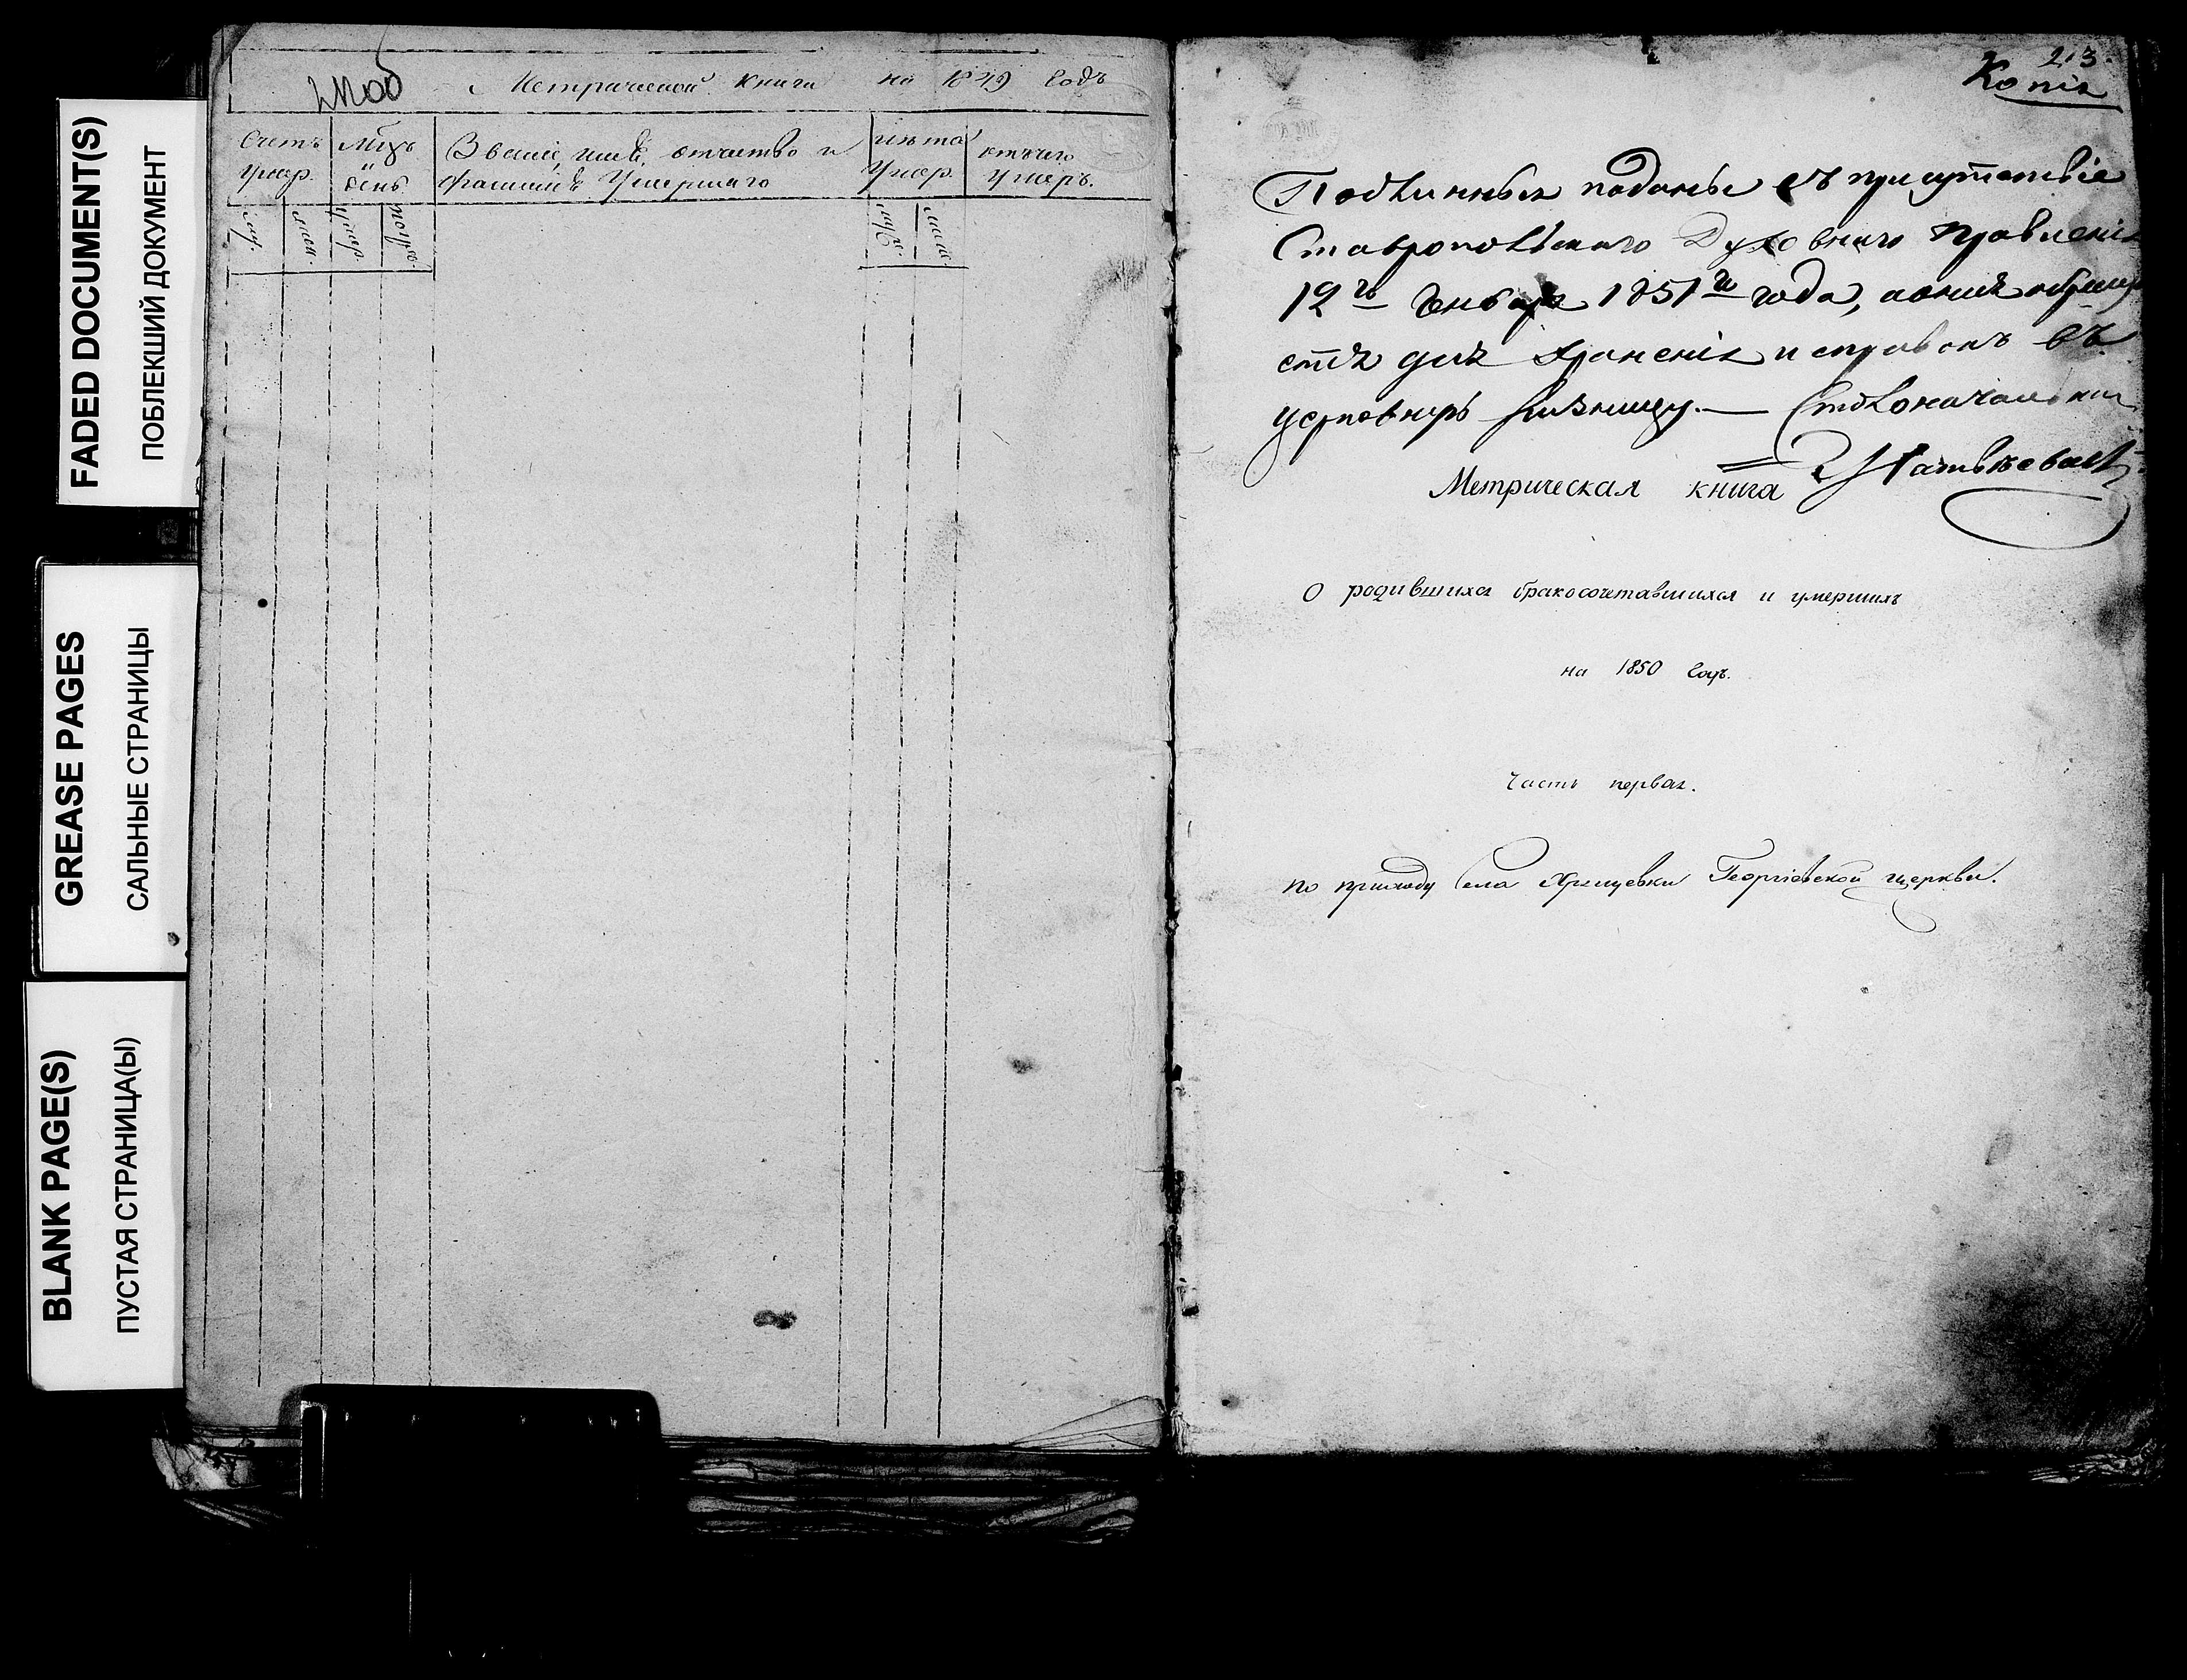 FADED DOCUMENT(S)
ПОБЛЕКШИЙ ДОКУМЕНТ
GREASE PAGES
САЛЬНЫЕ СТРАНИЦЫ
BLANK PAGE(S)
ПУСТАЯ СТРАНИЦА(Ы)
Метрической книги на 1849 Годъ
Счетъ умер.
день
Званiе, имя, отчество и фамилiя Умершаго
лѣта Умер.
отчего умеръ.
муж.
жен.
умер.
погр.
муж.
жен.
213
Копiя
Подлинныя поданы въ присутствiе
Ставропольскаго Духовнаго Правленiя
12го Генваря 1851го года, а
для храненiя и справокъ въ
ризницу. — Столоначальник
Метрическая книга
О родившихся бракосочетавшихся и умершихъ
на 1850 Годъ.
Часть первая.
по приходу Села Хрящевки Георгiевской церкви.